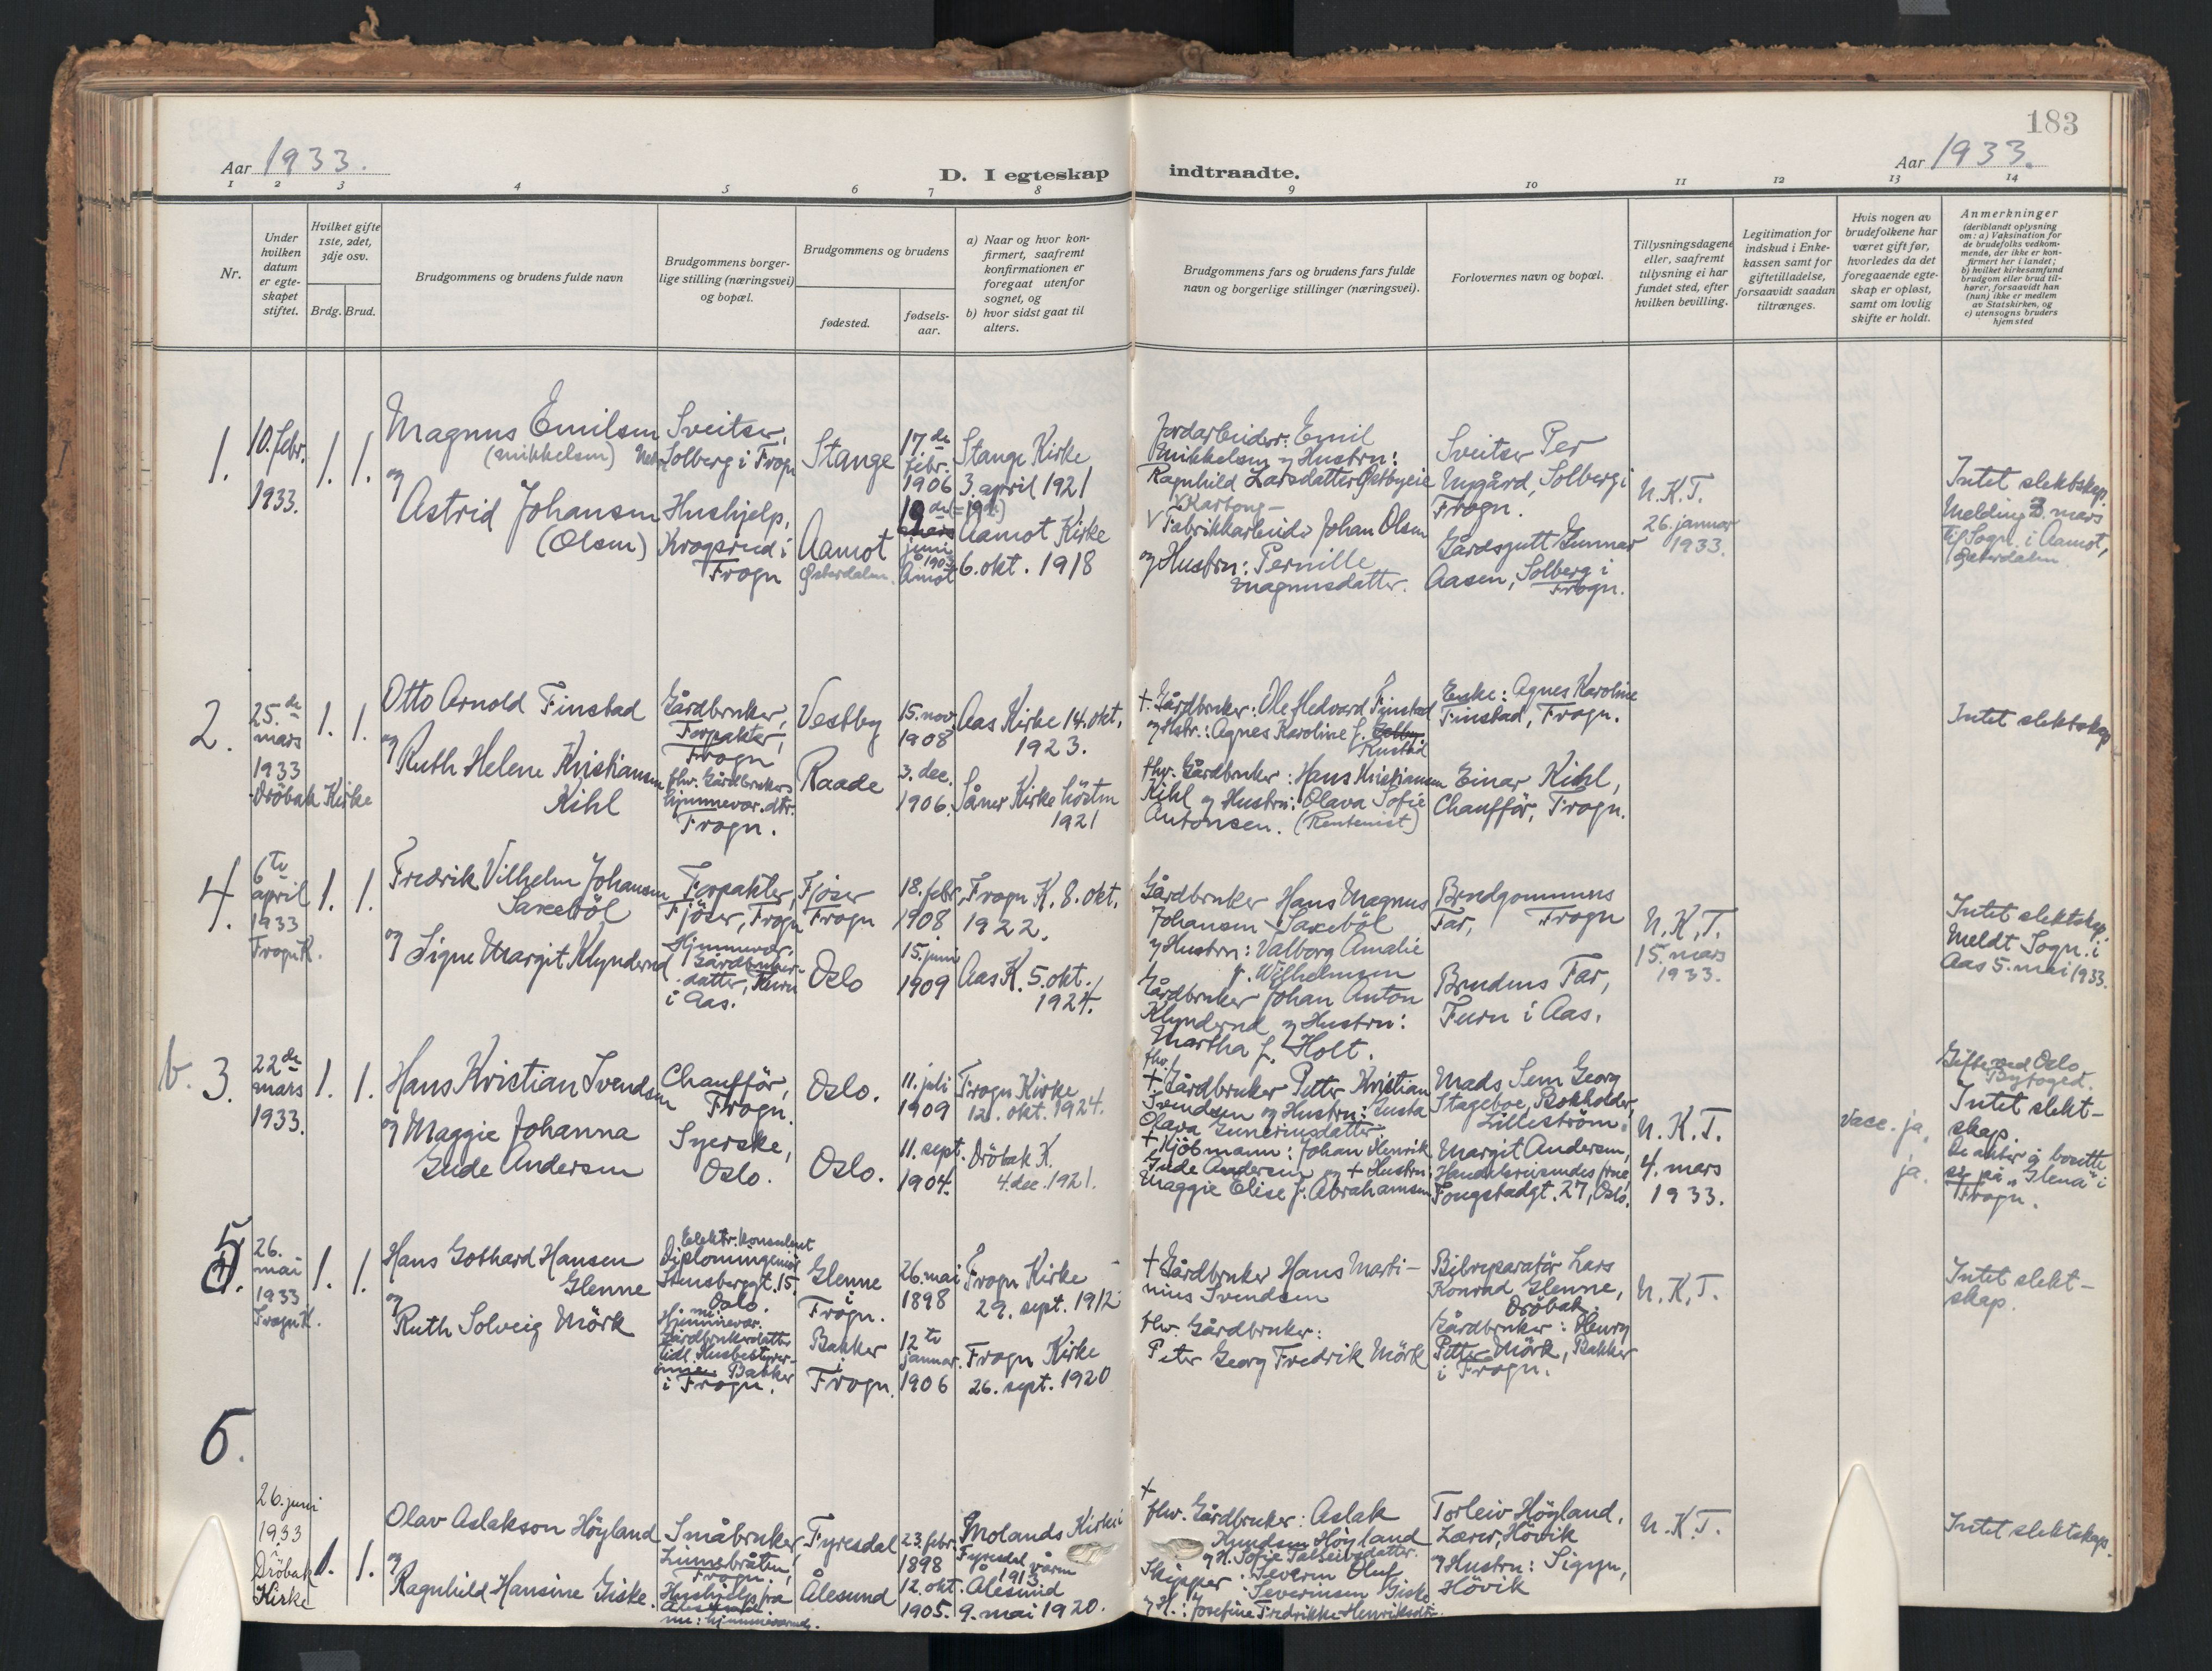 183
Aar 1933.
D. I egteskap indtraadte.
Aar 1933.
1 2 3 4 5 6 7 8 9 10 11 12 13 14
Nr.
Under
hvilken
datum
er egte-
skapet
stiftet.
Hvilket gifte
1ste, 2det,
3dje osv.
Brdg. Brud.
Brudgommens og brudens fulde navn
Brudgommens borger-
lige stilling (næringsvei)
og bopæl.
Brudgommens og brudens
fødested.
fødsels-
aar.
a) Naar og hvor kon-
firmert, saafremt
konfirmationen er
foregaat utenfor
sognet, og
b) hvor sidst gaat til
alters.
Brudgommens fars og brudens fars fulde
navn og borgerlige stillinger (næringsvei).
Forlovernes navn og bopæl.
Tillysningsdagene
eller, saafremt
tillysning ei har
fundet sted, efter
hvilken bevilling.
Legitimation for
indskud i Enke-
kassen samt for
giftetilladelse,
forsaavidt saadan
tiltrænges.
Hvis nogen av
brudefolkene har
været gift før,
hvorledes da det
foregaaende egte-
skap er opløst,
samt om lovlig
skifte er holdt.
Anmerkninger
(deriblandt oplysning
om: a) Vaksination for
de brudefolks vedkom-
mende, der ikke er kon-
firmert her i landet;
b) hvilket kirkesamfund
brudgom eller brud til-
hører, forsaavidt han
(hun) ikke er medlem
av Statskirken, og
c) utensogns bruders
hjemsted
1.
10. febr.
1933.
1. 1.
Magnus Emilsen
(Mikkelsen)
og
Astrid Johansen
(Olsen)
Sveitser,
Solberg i Frogn
Hushjelp,
Krogsrud i
Frogn
Stange
Aamot
Østerdalen
17de
febr.
1906
19de (=19de)
mars
juni
1903
Amot
Stange Kirke
3. april 1921
Aamot Kirke
6. okt. 1918
Jordarbeider: Emil
Mikkelsen og Hustru:
Ragnhild Larsdatter Østbyeie
V Kartong-
V Fabrikkarbeider Johan Olsen
og Hustru: Pernille
Magnusdatter.
Sveitser Per
Nygård, Solberg i
Frogn.
Gårdsgutt Gunnar
Aasen, Solberg i
Frogn.
N.K.T.
26. januar
1933.
Intet slektskap.
Melding 3. mars
til Sogn. i Aamot,
Østerdalen
2.
25.de
mars
1933
Dröbak Kirke
1. 1.
Otto Arnold Finstad
og
Ruth Helene Kristiansen
Kihl
Gårdbruker,
Forpakter,
Frogn
fhv. Gårdbrukers
hjemmevær. dtr.
Frogn.
Vestby
Raade
15. nov.
1908
3. dec.
1906.
Aas Kirke 14. okt.
1923.
Såner Kirke hösten
1921
+ Gårdbruker: Ole Hedvard Finstad
og Hstr.: Agnes Karoline f.
Rustad
fhv. Gårdbruker: Hans Kristiansen
Kihl og Hustru: Olava Sofie
Antonsen. (Rentenist)
Enke: Agnes Karoline
Finstad, Frogn.
Einar Kihl,
Chaufför, Frogn.
Intet slektskap
4.
6te
april
1933
Frogn K.
1. 1.
Fredrik Vilhelm Johansen
Saxeböl
og Signe Margit Klynderud
Forpakter,
Fjöser, Frogn
Hjemmevær.
Gårdbruker-
datter, Furu
i Aas.
Fjöser
Frogn
Oslo
18. febr.
1908
15. juni
1909
Frogn K. 8. okt.
1922.
Aas K. 5. okt.
1924.
Gårdbruker Hans Magnus
Johansen Saxeböl
og Hustru: Valborg Amalie
f. Wilhelmsen
Gårdbruker Johan Anton
Klynderud og Hustru:
Martha f. Holt.
Brudgommens
Far, Frogn
Brudens Far,
Furu i Aas.
N.K.T.
15. mars
1933.
Intet slektskap.
Meldt Sogn. i
Aas 5. mai 1933.
b. 3.
22de
mars
1933.
1. 1.
Hans Kristian Svendsen
og Maggie Johanna
Gude Andersen
Chaufför,
Frogn.
Syerske,
Oslo.
Oslo.
Oslo.
11. juli
1909
11. sept.
1904.
Frogn Kirke
12. okt. 1924.
Dröbak K.
4. dec. 1921.
fhv.
+ Gårdbruker Petter Kristian
Svendsen og Hustru: Gusta
Olava Guneriusdatter.
+ Kjöbmann: Johan Henrik
Gude Andersen og + Hustru:
Maggie Elise f. Abrahamsen
Mads Sem Georg
Stageboe, Bokholder,
Lilleström.
Margit Andersen,
Handelsreisendes frue,
Fougstadgt. 27, Oslo.
N.K.T.
4. mars
1933.
Vace. ja.
ja.
Gifte ved Oslo
Byfoged.
Intet slekt-
skap.
De akter å bosette
sig på „Glena" i
Frogn.
5.
26.
mai
1933
Frogn K.
1. 1.
Hans Gothard Hansen
Glenne
og
Ruth Solveig Mörk
Elektr. konsulent
Diplomingeniör
Stensberggt. 15.
Oslo.
Hjemmevær.
Gårdbrukerdatter
tidl. Husbestyrer-
inne Bakker
i Frogn.
Glenne
i
Frogn.
Bakker
i
Frogn.
26. mai
1898
12te
januar.
1906
Frogn Kirke
29. sept. 1912
Frogn Kirke
26. sept. 1920
+ Gårdbruker Hans Marti-
nius Svendsen
fhv. Gårdbruker:
Peter Georg Fredrik Mörk
Bilreparatör Lars
Konrad Glenne,
Dröbak.
Gårdbruker: Henry
Petter Mörk, Bakker
i Frogn.
N.K.T.
Intet slekt-
skap.
6.
26. juni
1933
Dröbak
Kirke
1. 1.
Olav Aslakson Höyland
og
Ragnhild Hansine Giske.
Småbruker,
Linnebråten,
Frogn.
Hushjelp fra
Ålesund
nu: hjemmeværende.
Fyresdal
Ålesund
23. febr.
1898
12. okt.
1905.
Molands Kirke i
Fyresdal våren
1913
Ålesund
9. mai 1920.
+
fhv. Gårdbruker: Aslak
Knudsen Höyland
og H. Sofie Talleivsdatter.
Skipper: Severin Oluf
Severinsen Giske
og H.: Josefine Fredrikke Henriksdtr.
Torleiv Höyland,
Lærer, Hövik
og Hustru: Sigyn,
Hövik
N.K.T.
Intet slektskap.